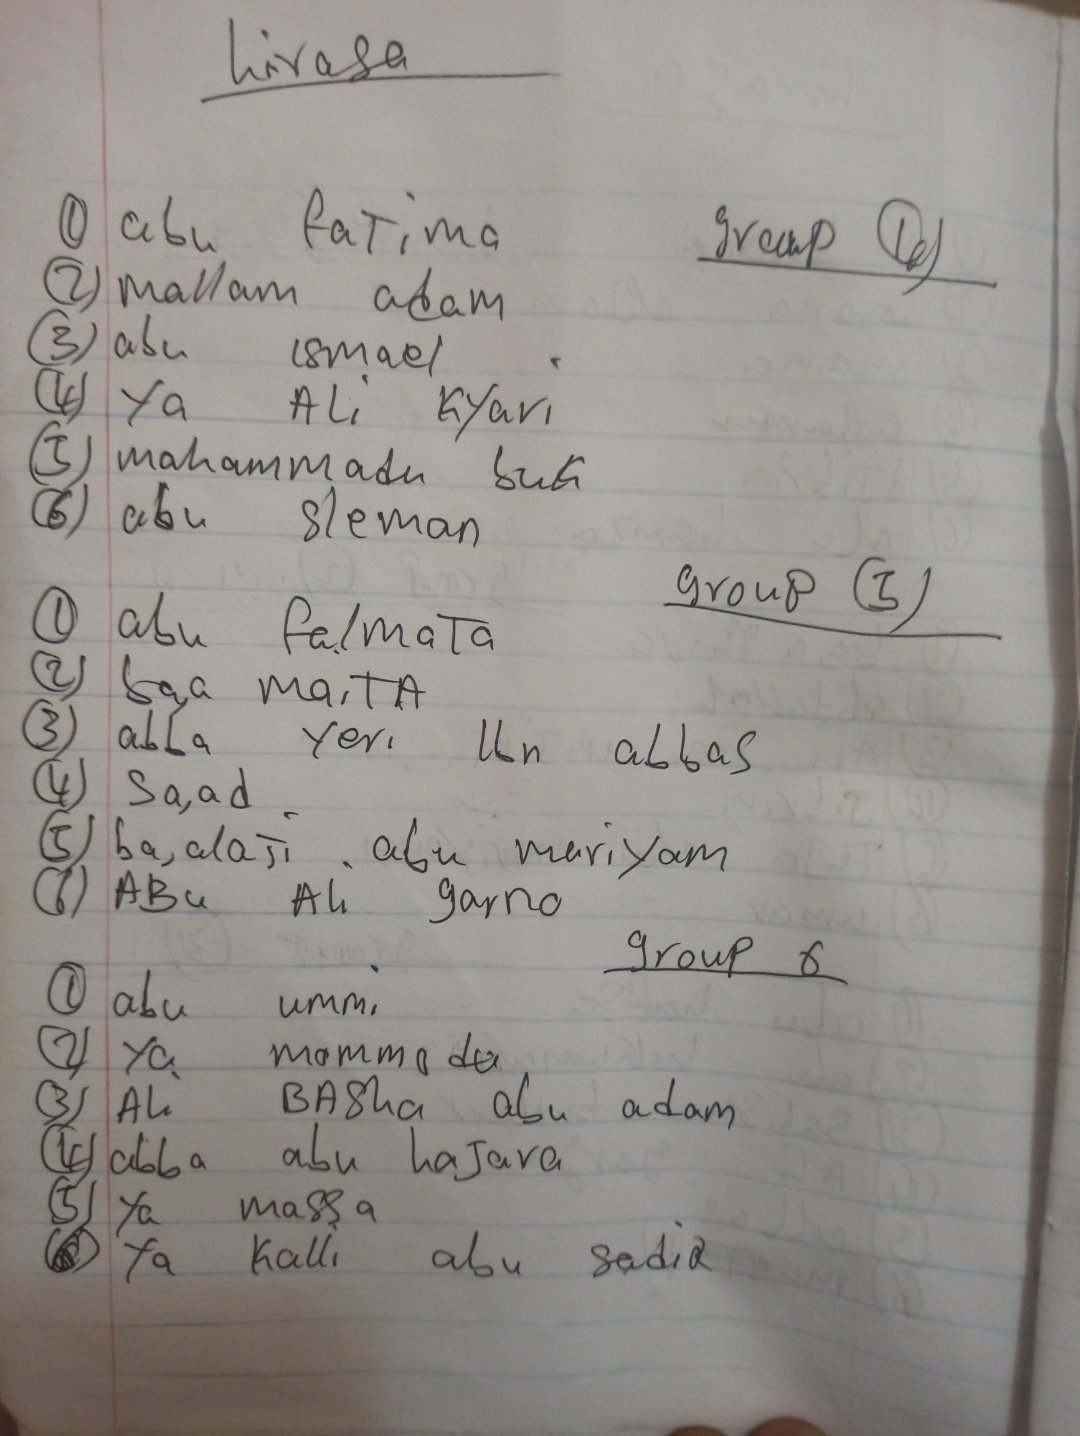 hirasa
group (4)
(1) abu fatima
(2) mallam adam
(3) abu ismael
(4) ya Ali Kyari
(5) mahammadu
(6) abu sleman
group (5)
(1) abu falmata
(2) ba,a maiTA
(3) abba yeri Ibn abbas
(4) Sa,ad
(5) ba,alaji . abu mariyam
(6) ABu Ali garno
group 6
(1) abu ummi
(2) ya mommodu
(3) Ali BASha abu adam
(4) abba abu hajara
(5) ya massa
(6) Ya Kalli abu sadiq